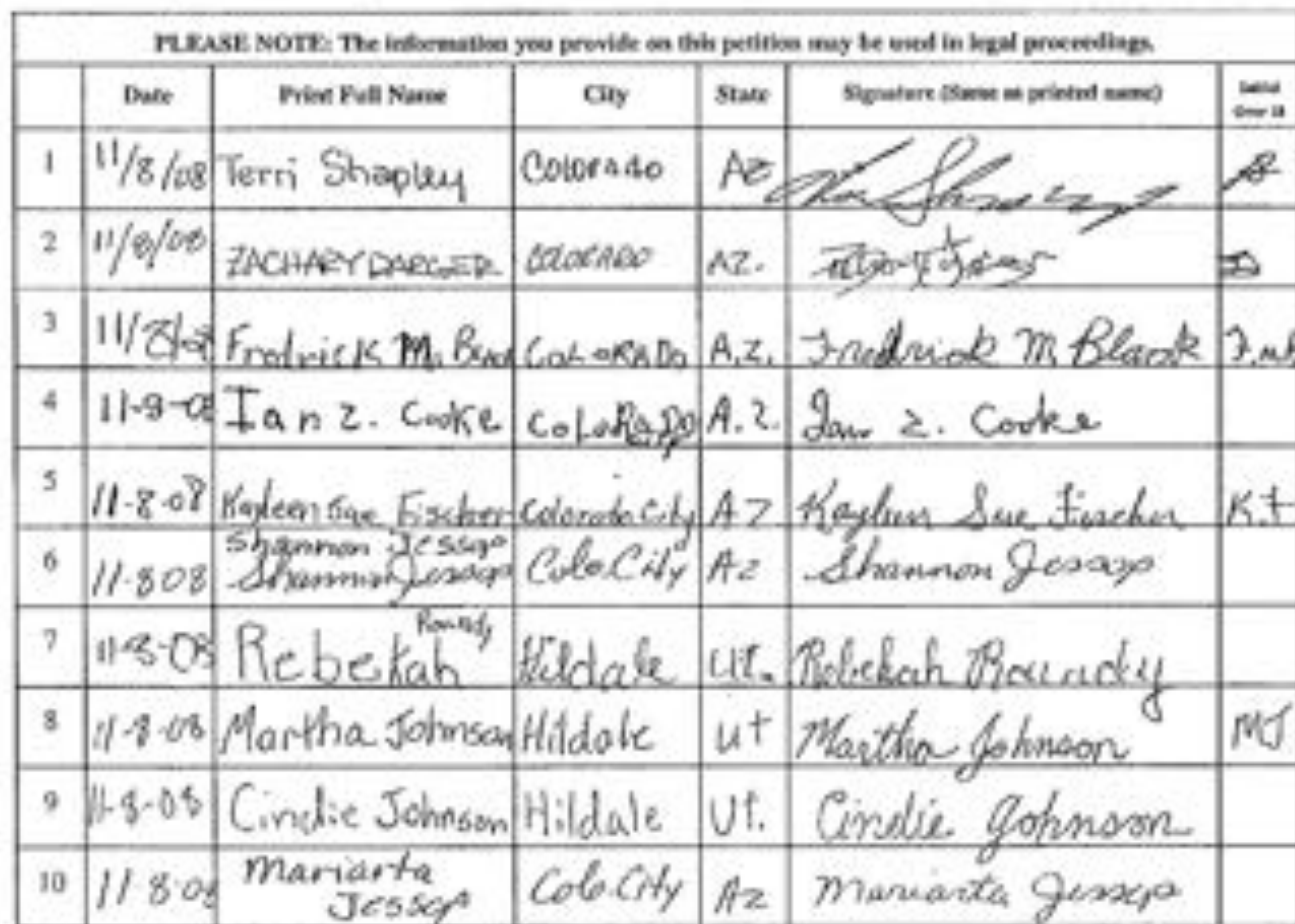 PLEASE NOTE: The information you provide on this petition may be used in legal proceedings.
Date Print Full Name City State Signature (Same as printed name) Initial Over 18
1 11/8/08 Terri Shapley Colorado AZ
2 11/8/08 ZACHARY DARGER COLORADO AZ.
3 11/8/08 Fredrick M. Black COLORADO A.Z. Fredrick M Black F.M.B
4 11-9-08 Ian Z. Cooke COLORADO A.Z. Ian Z. Cooke
5 11-8-08 Kayleen Sue Fischer Colorado City AZ Kayleen Sue Fischer K.F
Shannon Jessop
6 11-8 08 Shannon Jessop Colo. City AZ Shannon Jessop
Roundy
7 11-8-08 Rebekah Hildale Ut. Rebekah Roundy
8 11-8-08 Martha Johnson Hildale Ut Martha Johnson MJ
9 11-8-08 Cindie Johnson Hildale Ut. Cindie Johnson
10 11-8-08 Mariarta Colo. City Az Mariarta Jessop
Jessop